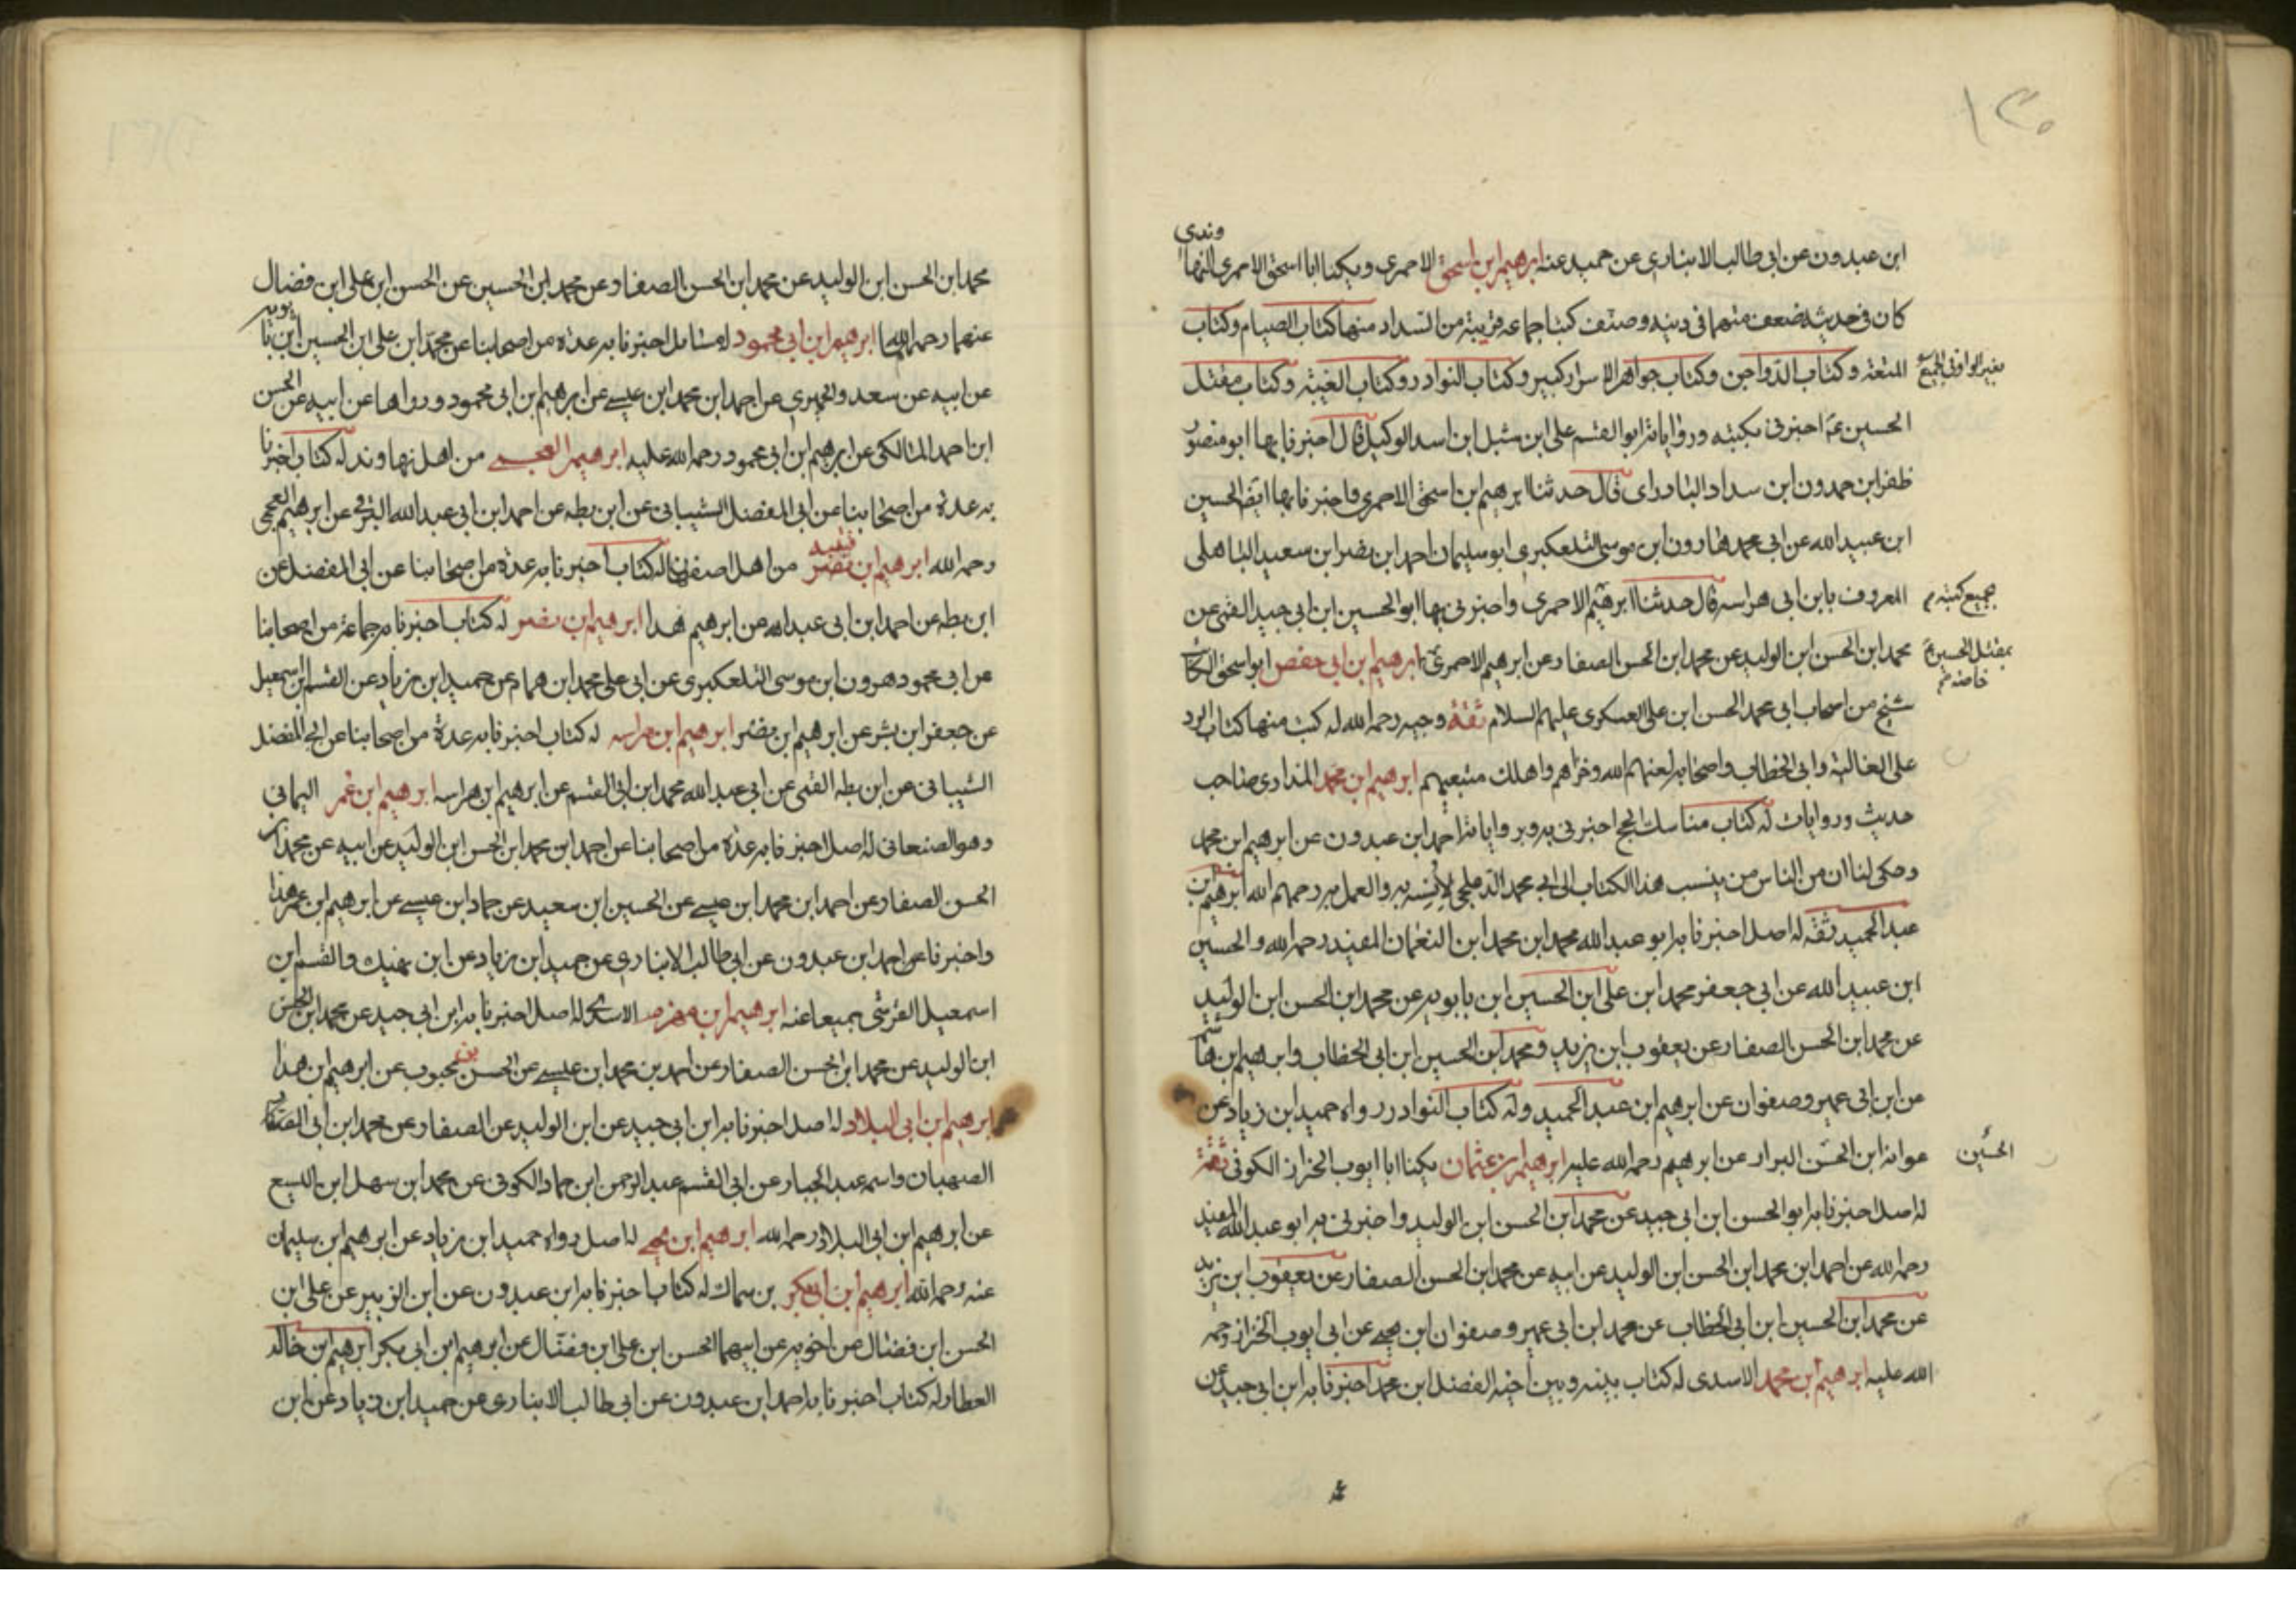 ١٣٠
ابن عبدون عن ابى طالب الانبارى عن حميد عنه ابرهيم ابن اسحق الاحمرى ويكنا ابا اسحق الاحمرى النهاوندى
كان فى حديثه ضعف متهما فى دينه وصنف كتبا جماعه قريبة من السداد منها كتاب الصيام وكتاب
المتعة وكتاب الدواجن وكتاب جواهر الاسرار كبير وكتاب النوادر وكتاب الغيبة وكتاب مقتل
الحسين ع اخبرنى بكتبه ورواياته ابو القسم على ابن شبل ابن اسد الوكيل قال اخبرنا بها ابو منصور
ظفر ابن حمدون ابن سداد البادراى قال حدثنا ابرهيم ابن اسحق الاحمرى واخبرنا بها ايضا الحسين
ابن عبيد الله عن ابى محمد هارون ابن موسى التلعكبرى ابو سليمان احمد ابن نصر ابن سعيد الباهلى
المعروف بابن ابى هراسه قال حدثنا ابرهيم الاحمرى واخبرنى بها ابو الحسين ابن ابى جيد القمى عن
جميع كتبه
محمد ابن الحسن ابن الوليد عن محمد ابن الحسن الصفار عن ابرهيم الاحمرى ابرهيم ابن ابى حفص ابو اسحق الكاتب
بمقتل الحسين ع
خاصه
شيخ من اصحاب ابى محمد الحسن ابن على العسكرى عليهم السلام ثقة وجيه رحمه الله له كتب منها كتاب الرد
على الغالية وابى الخطاب واصحابه لعنهم الله وخزاهم واهلك متبعيهم ابرهيم ابن محمد المذارى صاحب
حديث وروايات له كتاب مناسك الحج اخبرنى به وبرواياته احمد ابن عبدون عن ابرهيم ابن محمد
وحكى لنا ان من الناس من ينسب هذا الكتاب الى ابى محمد الدعلجى لانسه به والعمل به رحمهم الله ابرهيم بن
عبد الحميد ثقه له اصل اخبرنا به ابو عبد الله محمد ابن محمد ابن النعمان المفيد رحمه الله والحسين
ابن عبيد الله عن ابى جعفر محمد ابن على ابن الحسين ابن بابويه عن محمد ابن الحسن ابن الوليد
عن محمد ابن الحسن الصفار عن يعقوب ابن يزيد ومحمد ابن الحسين ابن ابى الخطاب وابرهيم ابن هاشم
عن ابن ابى عمير وصفوان عن ابرهيم ابن عبد الحميد وله كتاب النوادر رواه حميد ابن زياد عن
عوانه ابن الحسن البزاز عن ابرهيم رحمه الله عليه ابرهيم بن عثمان يكنا ابا ايوب الخزاز الكوفى ثقة
الحسين
له اصل اخبرنا به ابو الحسن ابن ابى جيد عن محمد ابن الحسن ابن الوليد واخبرنى به ابو عبد الله المفيد
رحمه الله عن احمد ابن محمد ابن الحسن ابن الوليد عن ابيه عن محمد ابن الحسن الصفار عن يعقوب ابن يزيد
عن محمد ابن الحسين ابن ابى الخطاب عن محمد ابن ابى عمير وصفوان ابن يحيى عن ابى ايوب الخزاز رحمه
الله عليه ابرهيم ابن محمد الاسدى له كتاب بينه وبين اخيه الفضل ابن محمد اخبرنا به ابن ابى جيد عن
محمد ابن الحسن ابن الوليد عن محمد ابن الحسن الصفار عن محمد ابن الحسين عن الحسن ابن على ابن فضال
عنهما رحمهما الله ابرهيم ابن ابى محمود له مسائل اخبرنا به عدة من اصحابنا عن محمد ابن على ابن الحسين ابن بابويه
عن ابيه عن سعد والحميرى عن احمد ابن محمد ابن عيسى عن ابرهيم ابن ابى محمود ورواها عن ابيه عن الحسن
ابن احمد المالكى عن ابرهيم ابن ابى محمود رحمه الله عليه ابرهيم العجمى من اهل نهاوند له كتاب اخبرنا
به عدة من اصحابنا عن ابى المفضل الشيبانى عن ابن بطه عن احمد ابن ابى عبد الله البرقى عن ابرهيم العجمى
رحمه الله ابرهيم ابن قتيبه من اهل اصفهان له كتاب اخبرنا به عدة من اصحابنا عن ابى المفضل عن
ابن بطه عن احمد ابن ابى عبد الله عن ابرهيم هذا ابرهيم ابن نصر له كتاب اخبرنا به جماعة من اصحابنا
عن ابى محمود هرون ابن موسى التلعكبرى عن ابى على محمد ابن همام عن حميد ابن زياد عن القسم ابن اسمعيل
عن جعفر ابن بشر عن ابرهيم ابن نصر ابرهيم ابن هراسه له كتاب اخبرنا به عدة من اصحابنا عن ابى المفضل
الشيبانى عن ابن بطه القمى عن ابى عبد الله محمد ابن ابى القسم عن ابرهيم ابن هراسه ابرهيم ابن عمر اليمانى
وهو الصنعانى له اصل اخبرنا به عدة من اصحابنا عن احمد ابن محمد ابن الحسن ابن الوليد عن ابيه عن محمد ابن
الحسن الصفار عن احمد ابن محمد ابن عيسى عن الحسين ابن سعيد عن حماد ابن عيسى عن ابرهيم ابن عمر هذا
واخبرنا عن احمد ابن عبدون عن ابى طالب الانبارى عن حميد ابن زياد عن ابن نهيك والقسم ابن
اسمعيل القرشى جميعا عنه ابرهيم ابن مهزم الاسدى له اصل اخبرنا به ابن ابى جيد عن محمد ابن الحسن
ابن الوليد عن محمد ابن الحسن الصفار عن احمد بن محمد ابن عيسى عن الحسن بن محبوب عن ابرهيم ابن هذا
ابرهيم ابن ابى البلاد له اصل اخبرنا به ابن ابى جيد عن ابن الوليد عن الصفار عن محمد ابن ابى الصفار
الصهبان واسمه عبد الجبار عن ابى القسم عبد الرحمن ابن حماد الكوفى عن محمد ابن سهل ابن اليسع
عن ابرهيم ابن ابى البلاد رحمه الله ابرهيم ابن يحيى له اصل رواه حميد ابن زياد عن ابرهيم ابن سليمان
عنه رحمه الله ابرهيم بن ابى بكر بن سماك له كتاب اخبرنا به ابن عبدون عن ابن الزبير عن على ابن
الحسن ابن فضال عن اخويه عن ابيهما الحسن ابن على ابن فضال عن ابرهيم ابن ابى بكر ابرهيم ابن خالد
العطار له كتاب اخبرنا به احمد ابن عبدون عن ابى طالب الانبارى عن حميد ابن زياد عن ابن